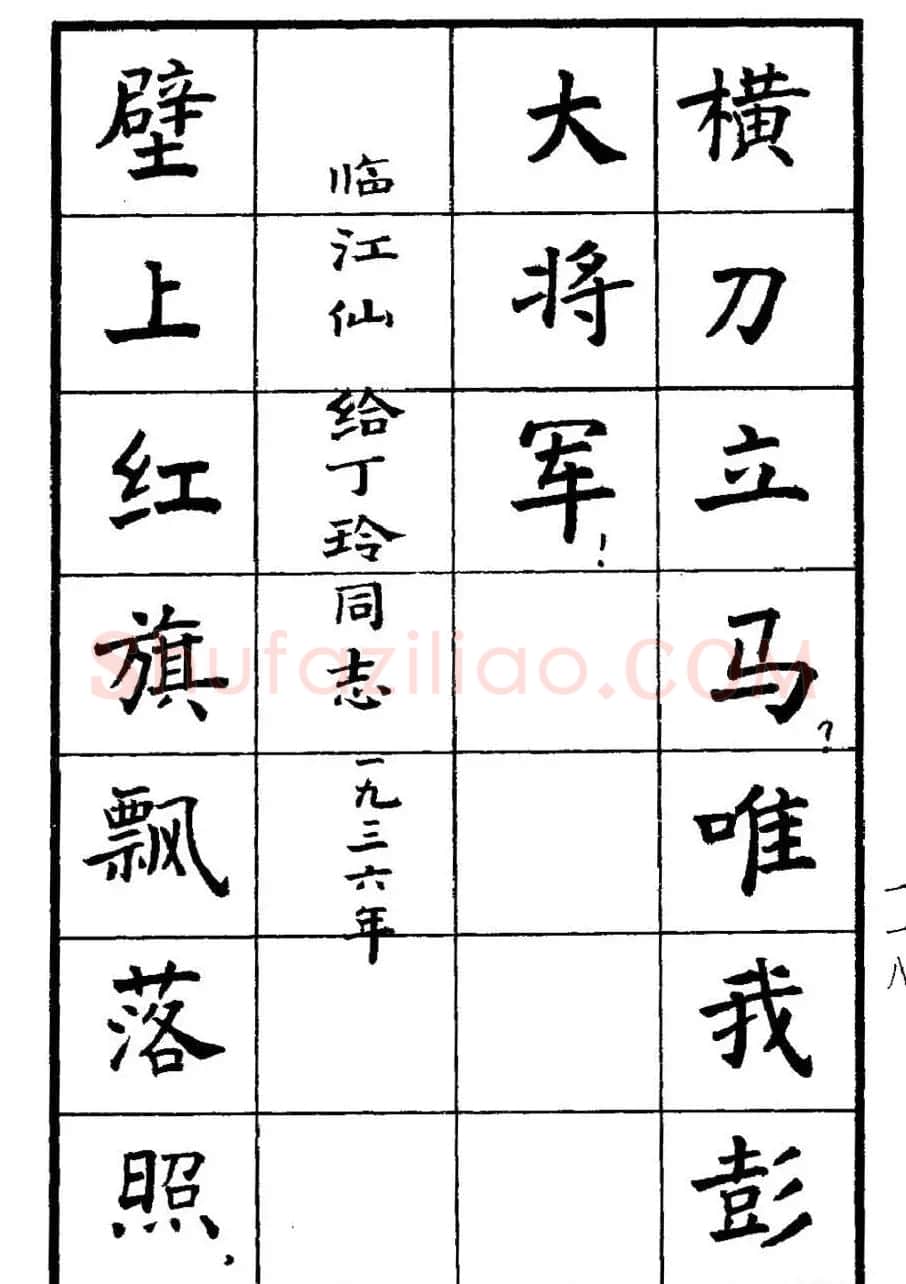 横刀立马？唯我彭
大将军！
临江仙 给丁玲同志 一九三六年
壁上红旗飘落照，
一二八
Shufaziliao.COM